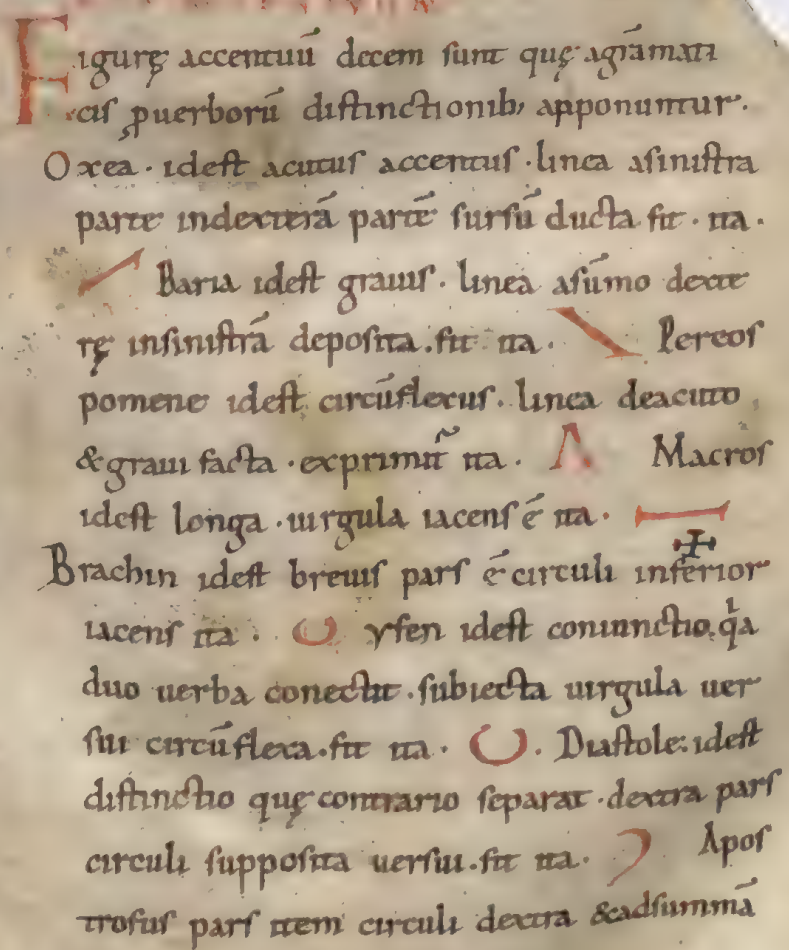 Figurę accentuū decem sunt quę agrāmati
cis ꝓuerborū distinctionib; apponuntur.
Oxea · idest acutus accentus · linea asinistra
parte indexterā partē sursū ducta fit · ita ·
Baria idest grauis · linea asūmo dexte
rę insinistrā deposita . fit ita · Pereos
pomene idest circūflexus . linea deacuto
& graui facta · exprimit᷑ ita · Macros
idest longa · uirgula iacens ē ita ·
Brachin idest breuis pars ē circuli inferior
iacens ita · yfen idest coniunctio, qͥa
duo uerba conectit · subiecta uirgula uer
sui circūflexa . fit ita · Diastole : idest
distinctio quę contrario separat · dextra pars
circuli supposita uersui . fit ita · Apos
trofus pars item circuli dextra & adsummā